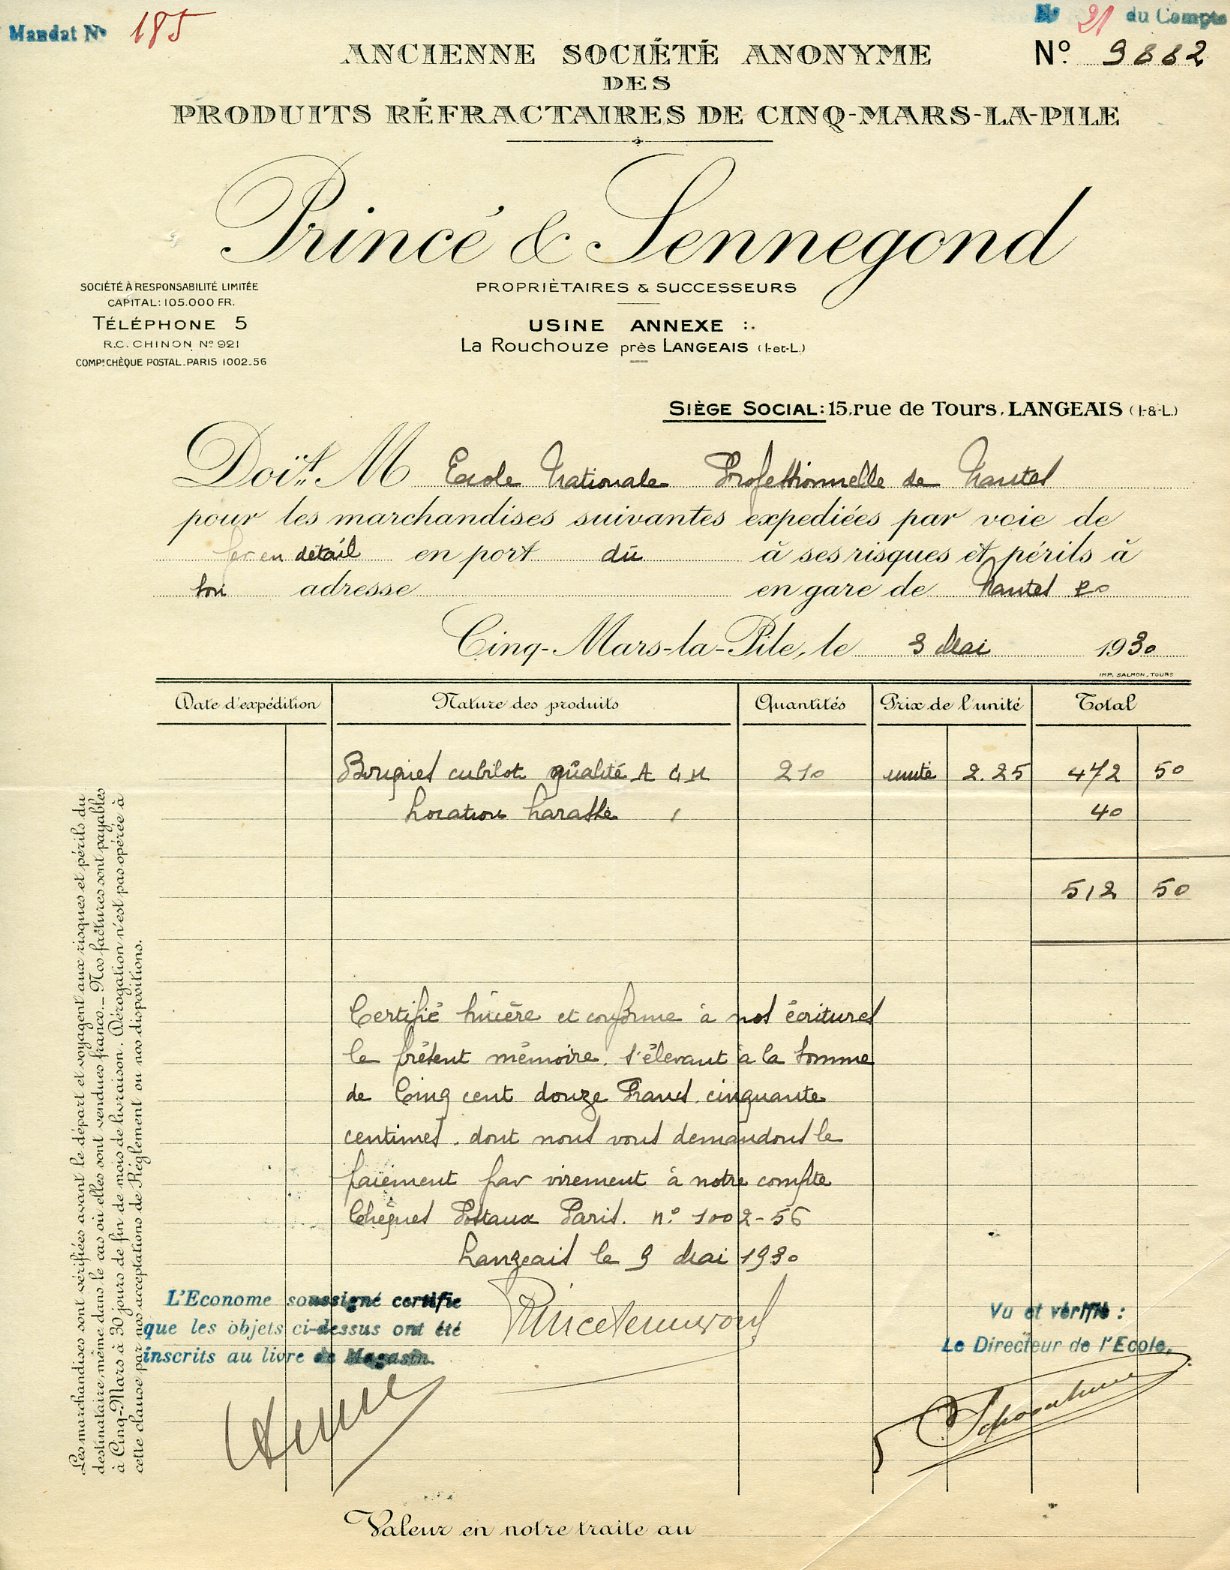 Mandat No 185
No 21 du Compte
ANCIENNE SOCIÉTÉ ANONYME
No. 9882
DES
PRODUITS RÉFRACTAIRES DE CINQ-MARS-LA-PILE
Princé & Sennegond
SOCIÉTÉ À RESPONSABILITÉ LIMITÉE
CAPITAL: 105.000 FR.
TÉLÉPHONE 5
R.C. CHINON No 921
COMPte CHÈQUE POSTAL. PARIS 1002.56
PROPRIÈTAIRES & SUCCESSEURS
USINE ANNEXE :.
La Rouchouze près LANGEAIS (I-et-L.)
SIÈGE SOCIAL: 15, rue de Tours, LANGEAIS (I-&-L.)
Doit M Ecole Nationale Professionnelle de Nantes
pour les marchandises suivantes expediées par voie de
fer en détail en port dû à ses risques et périls à
son adresse en gare de Nantes
Cinq-Mars-la-Pile, le 3 Mai 1930
IMP. SALMON, TOURS
Date d'expédition Nature des produits Quantités Prix de l'unité Total
Bougies cubilot qualité A 210 unité 2.25 472 50
Location harasse 1 40
512 50
Certifié sincère et conforme à nos écritures
le présent mémoire. s'élevant à la somme
de Cinq cent douze Francs cinquante
centimes. dont nous vous demandons le
paiement par virement à notre compte
Chèques Postaux Paris. no 1002-56
Langeais le 3 Mai 1930
Les marchandises sont vérifiées avant le départ et voyagent aux risques et périls du
destinataire, même dans le cas où elles sont vendues franco. _ Nos factures sont payables
à Cinq-Mars à 30 jours de fin de mois de livraison. Dérogation n'est pas opérée à
cette clause par nos acceptations de Règlement ou nos dispositions.
L'Econome soussigné certifie
que les objets ci-dessus ont été
inscrits au livre de Magasin.
Vu et vérifié :
Le Directeur de l'Ecole,
Valeur en notre traite au